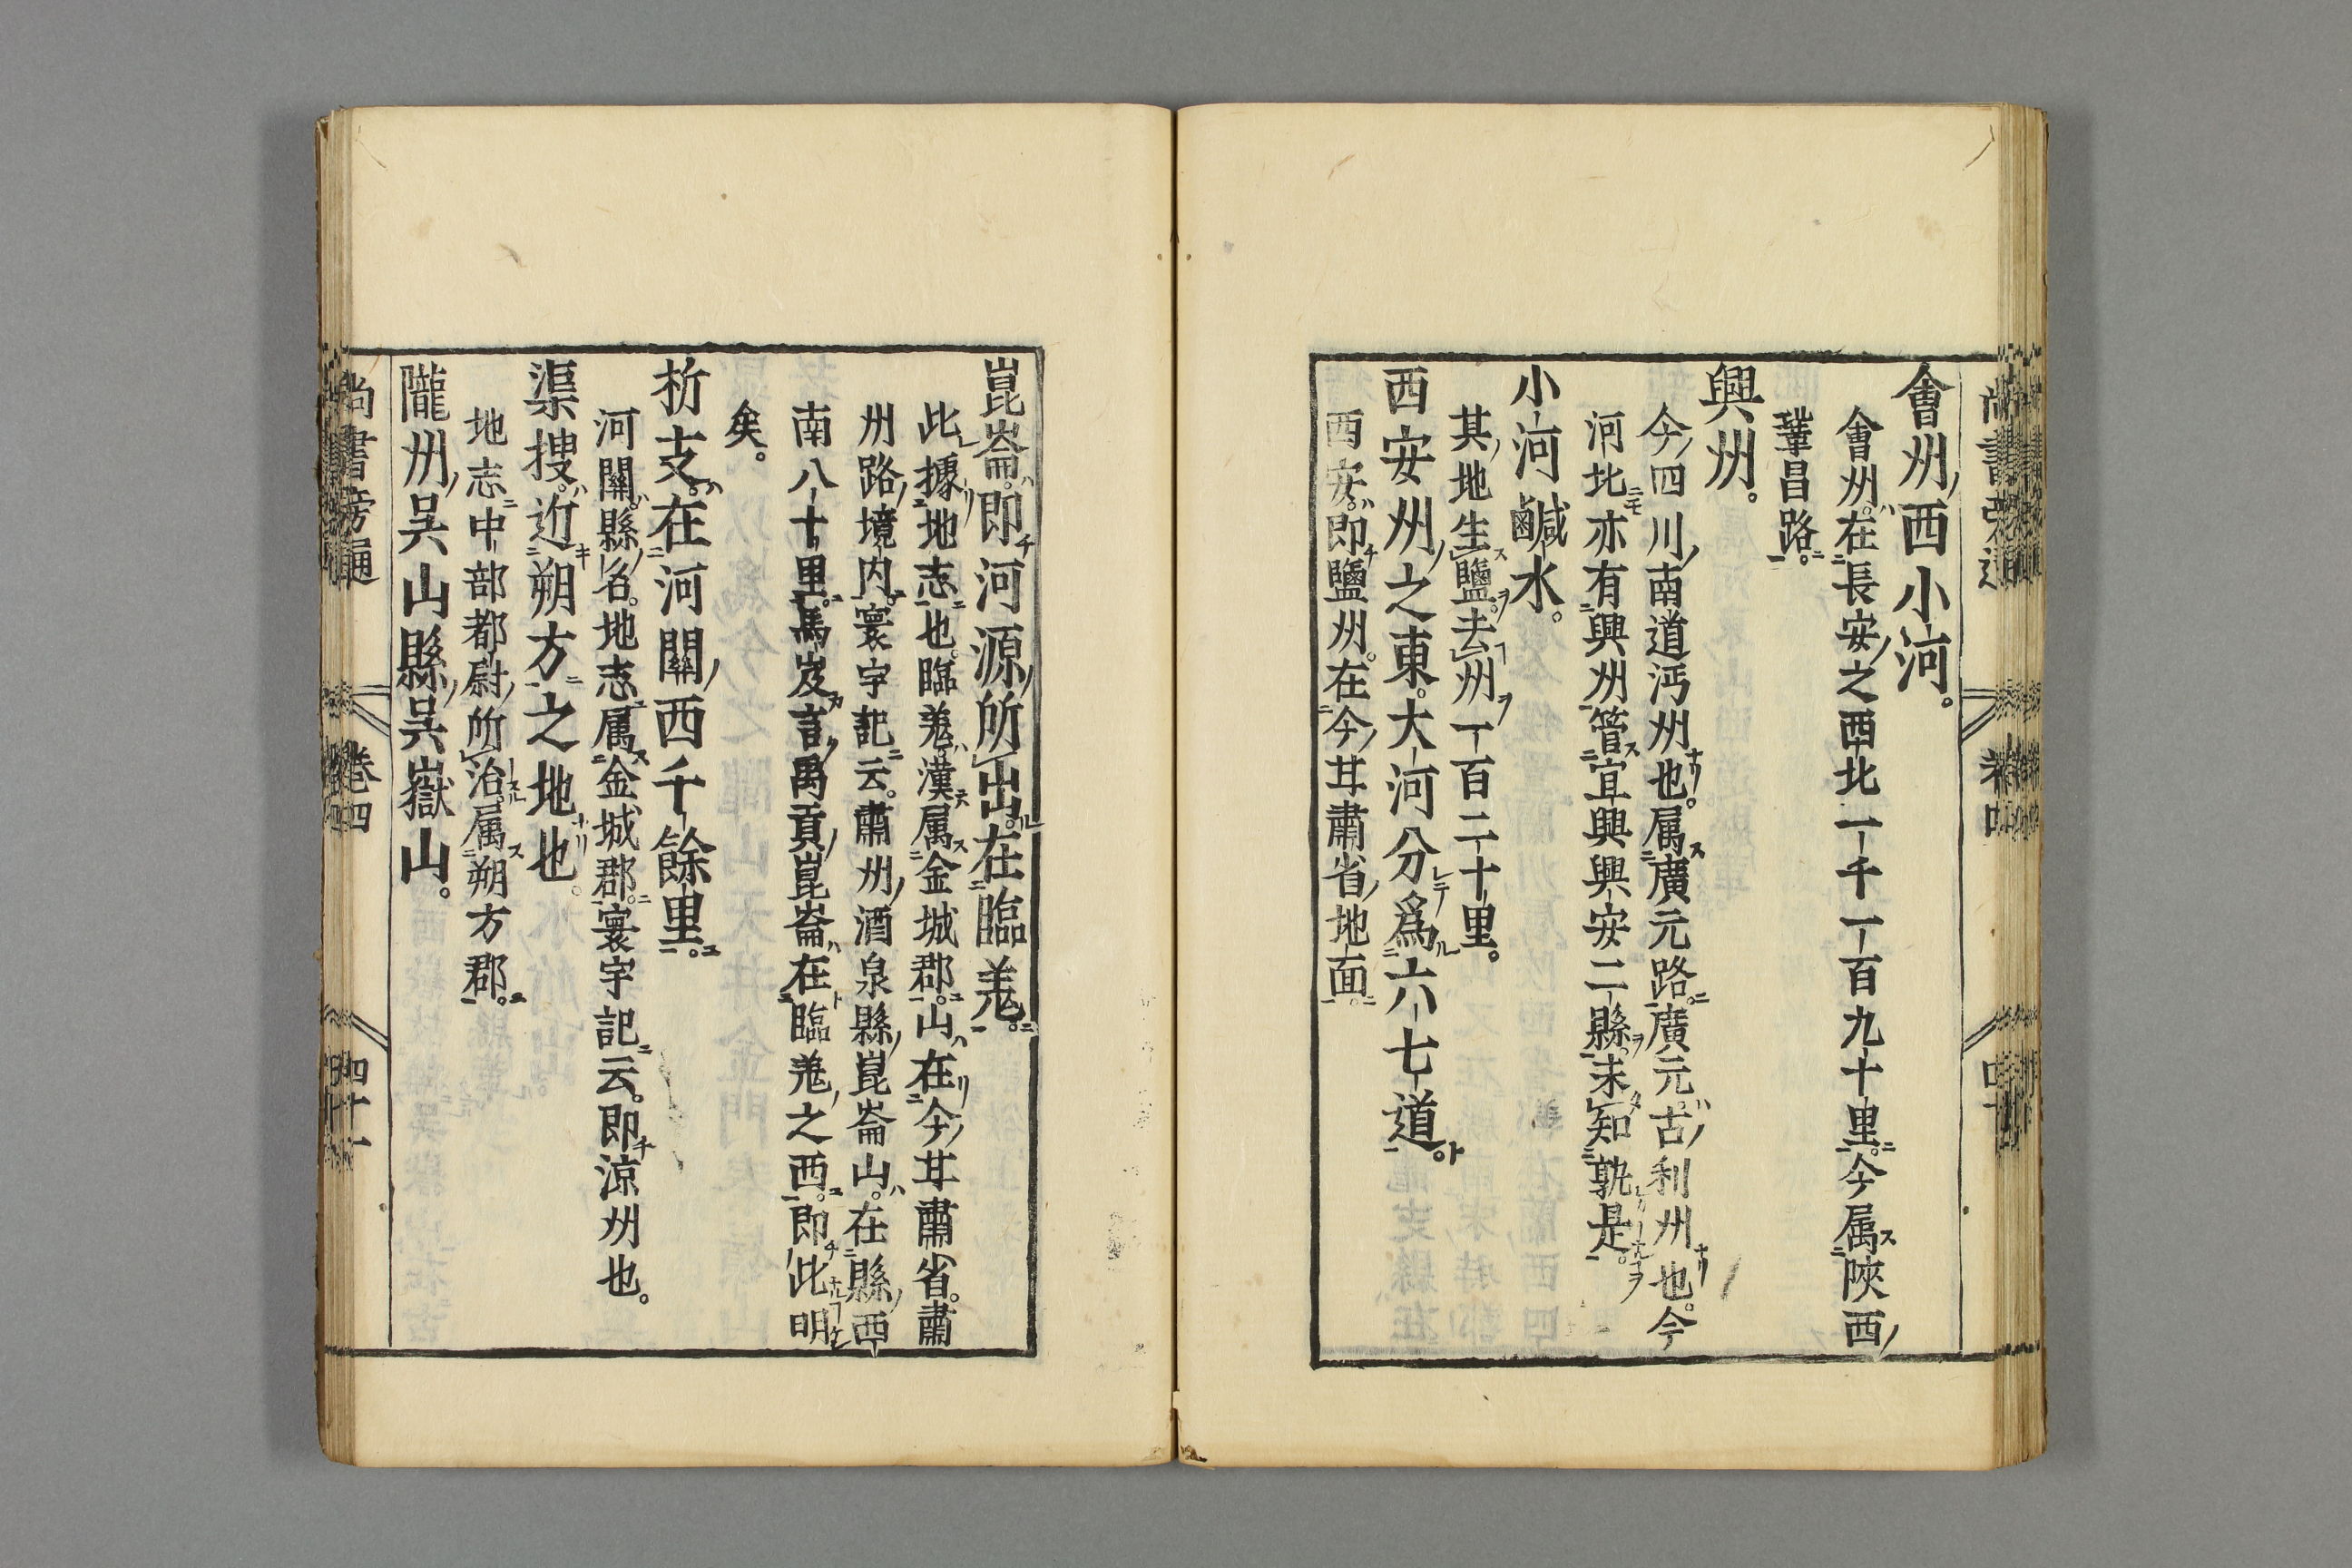 會州西小河。
會州。在長安之西北一千一百九十里。今属陝西
鞏昌路。
興州。
今四川南道沔州也。属廣元路。廣元。古利州也。今
河北亦有興州。管宜興興安二縣。未知孰是。
小河鹹水。
其地生鹽。去州一百二十里。
西安州之東。大河分爲六七道。
西安。即鹽州。在今甘肅省地面。
崑崙。即河源所出。在臨羗。
此據地志也。臨羗。漢属金城郡。山在今甘肅省。肅
州路境内。寰宇記云。肅州酒泉縣崑崙山。在縣西
南八十里。馬岌言禹貢崑崙在臨羗之西。即此明
矣。
析支。在河關西千餘里。
河關。縣名。地志属金城郡。寰宇記云。即涼州也。
渠搜。近朔方之地也。
地志中部都尉所治。属朔方郡。
隴州吴山縣吴嶽山。
尚書旁通 卷四 四十一